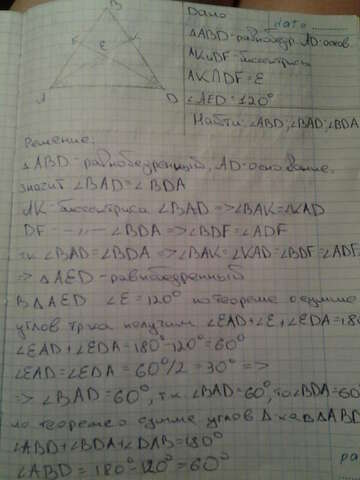 B
Дано
ΔABD-равнобедр. AD-основ.
AK и DF-биссектриса
F
E
K
AK∩DF=E
∠AED=120°
A
D
Найти: ∠ABD; ∠BAD; ∠BDA
Решение:
ΔABD-равнобедренный, AD-основание.
значит ∠BAD=∠BDA
AK-биссектриса ∠BAD =>∠BAK=∠KAD
DF -- // -- ∠BDA =>∠BDF=∠ADF
тк ∠BAD=∠BDA =>∠BAK=∠KAD=∠BDF=∠ADF
=> ΔAED-равнобедренный
В ΔAED ∠E=120° по теореме о сумме
углов тр-ка получим ∠EAD+∠E+∠EDA=18
∠EAD+∠EDA=180°-120°=60°
∠EAD=∠EDA=60°/2=30° =>
=> ∠BAD=60°, т.к ∠BAD=60°, то ∠BDA=60
по теореме о сумме углов Δ-ка в ΔABD
∠ABD+∠BDA+∠DAB=180°
∠ABD=180°-120°=60°